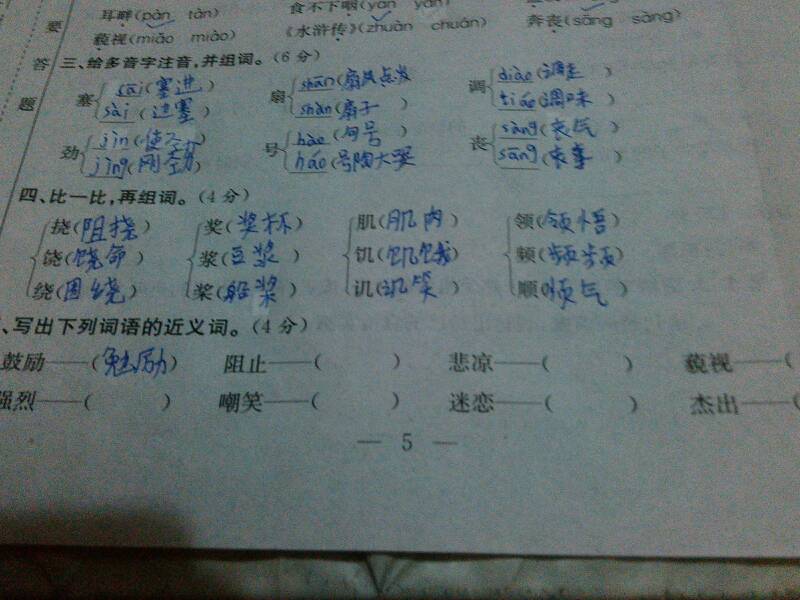 耳畔(pàn tàn) 食不下咽(yàn yàn)
要 藐视(miǎo miào) 《水浒传》(zhuàn chuán) 奔丧(sāng sàng)
答 三、给多音字注音,并组词。(6分)
题 塞 sāi(塞进) 扇 shān(扇风点火) 调 diào(调走)
sài(边塞) shàn(扇子) tiáo(调味)
劲 jìn(使劲) 号 hào(句号) 丧 sàng(丧气)
jìng(刚劲) háo(号陶大哭) sāng(丧事)
四、比一比,再组词。(4分)
挠(阻挠) 奖(奖杯) 肌(肌肉) 领(领悟)
饶(饶命) 浆(豆浆) 饥(饥饿) 频(频频)
绕(围绕) 桨(船桨) 讥(讥笑) 顺(顺气)
、写出下列词语的近义词。(4分)
鼓励——(勉励) 阻止——( ) 悲凉——( ) 藐视——(
强烈——( ) 嘲笑——( ) 迷恋——( ) 杰出——(
— 5 —